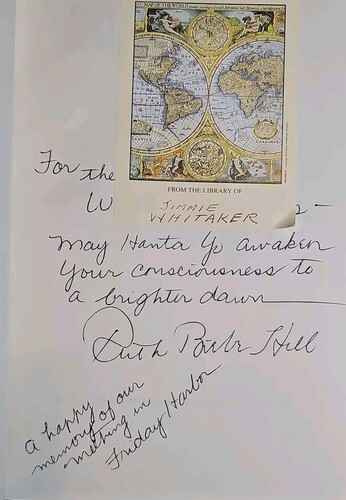 FROM THE LIBRARY OF
JIMMIE
WHITAKER
For the
W s-
May Hanta Yo awaken
your consciousness to
a brighter dawn
Ruth Beebe Hill
a happy
memory of our
meeting in
Friday Harbor